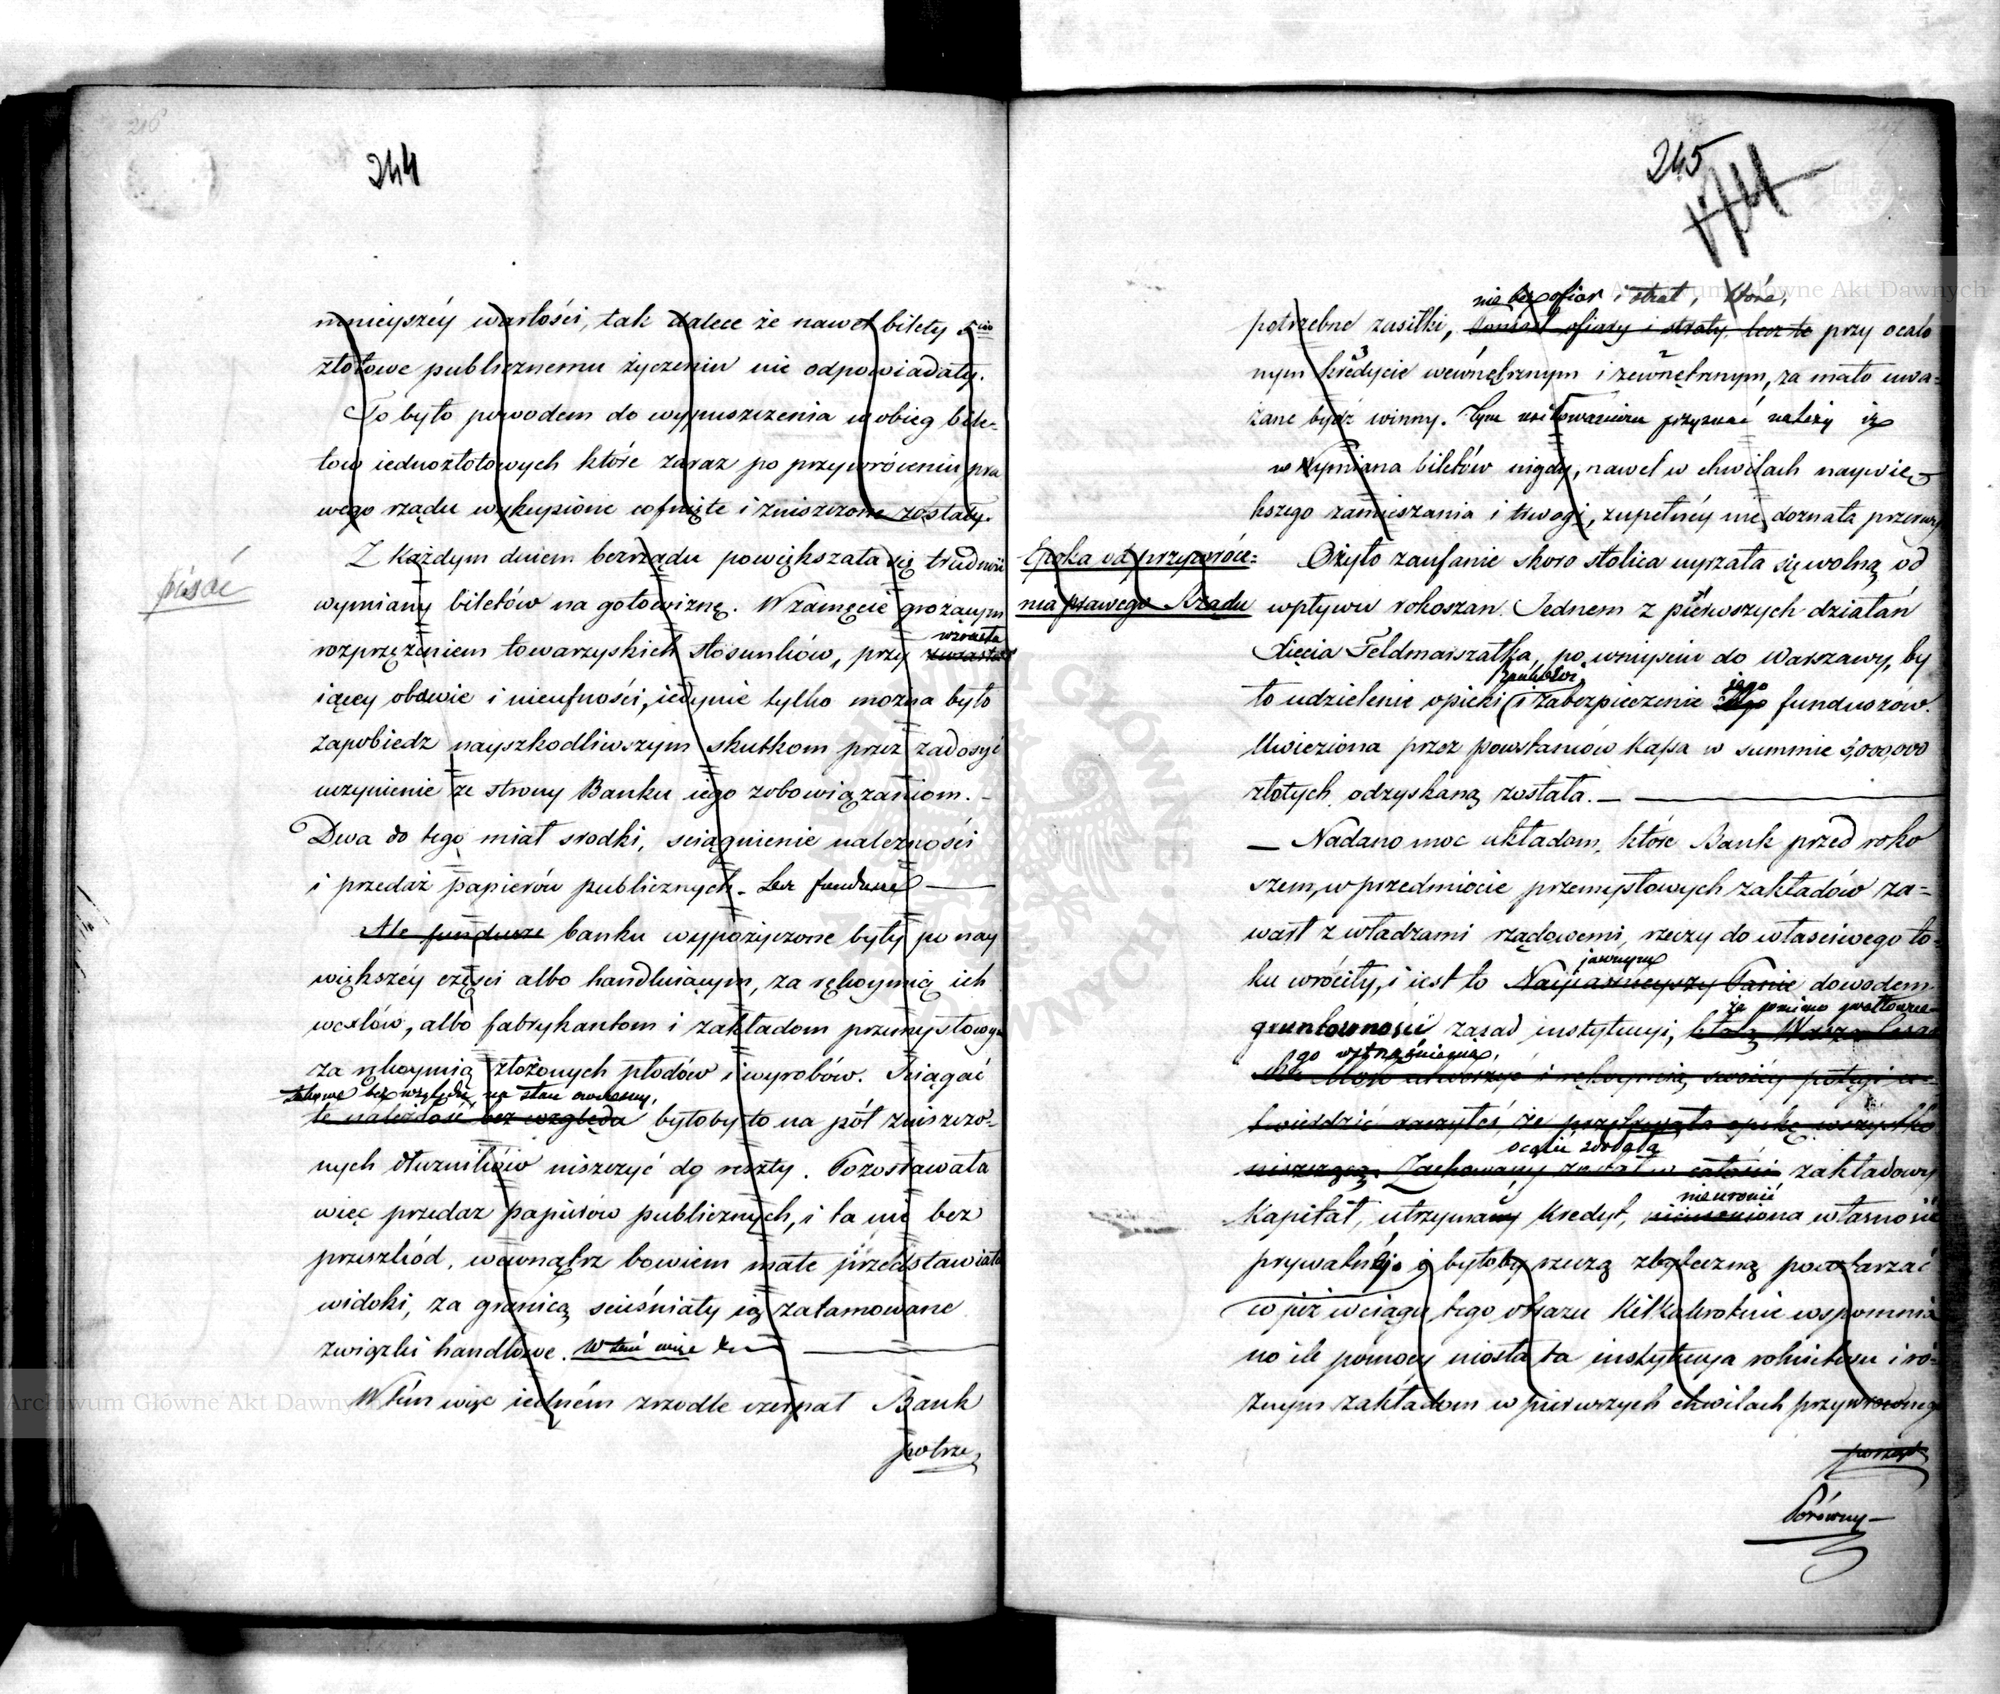 216
244
mnieyszéy wartości, tak dalece że nawet bilety 5cio
złotowe publicznemu życzeniu nie odpowiadały.
To było powodem do wypuszczenia w obieg bile-
tow iednozłotowych które zaraz po przywróceniu pra
wego rządu wykupione cofnięte i zniszczone zostały.
Z każdym dniem bezrządu powiększała się trudność
pisać
wymiany biletów na gotowiznę. W zamęcie grożącym
rozprzężeniem towarzyskich stosunków, przy
wzrasta
iącey obawie i nieufności, iedynie tylko można było
zapobiedz nayszkodliwszym skutkom przez zadosyć
uczynienie ze strony Banku iego zobowiązaniom. –
Dwa do tego miał srodki, sciągnienie należności
i przedaż papierów publicznych. Lecz fundusze
Ale fundusze banku wypożyczone były po nay
większéy części albo handluiącym, za rękoymią ich
wexlów, albo fabrykantom i zakładom przemysłowym
za rękoymią złożonych płodów i wyrobów. Sciągać
takowe bez względu na stan owczesny,
te należość bez względu byłoby to na pół zniszczo-
nych dłużników niszczyć do reszty. Pozostawała
więc przedaż papierów publicznych, i ta nie bez
przeszkód, wewnątrz bowiem małe przedstawiała
widoki, za granicą scieśniały ią zatamowane
związki handlowe. W tém więc
W tém więc iedném zrzodle czerpał Bank
potrze
245
nie bez ofiar i strat, które,
potrzebne zasiłki, ofiary i straty, lecz te przy ocalo
nym kredycie wewnętrznym i zewnętrznym, za mało uwa-
żane bydź winny. Tym usiłowaniom przyznać należy iż
wymiana biletów nigdy, nawet w chwilach naywię-
kszego zamieszania i trwogi, zupełnéy nie doznała przerwy
Epoka od przywróce-
nia prawego Rządu
Ożyło zaufanie skoro stolica uyrzała się wolną od
wpływu rokoszan. Jednem z pierwszych działań
Xięcia Feldmarszałka, po wniyściu do Warszawy, by
Banków
jego
ło udzielenie opieki i zabezpieczenie funduszów.
Uwieziona przez powstańców kassa w summie 5,000,000
złotych odzyskaną została. –
– Nadano moc układom, które Bank przed roko
szem, w przedmiocie przemysłowych zakładów za-
wart z władzami rządowemi, rzeczy do właściwego to-
jawnym
ku wróciły, i iest to Nayjaśnieyszy Panie dowodem
że pomimo gwałtowne-
gruntowności zasad instytucyi, którą Wasza Cesar
go wstrząśnienia,
sko Mość utworzyć i rękoymią swoiéy potęgi u-
twierdzić raczyłeś, że przetrwała epokę wszystko
ocalić zdołała
niszczącą. Zachowany został w całości zakładowy
nieuronić
Kapitał, utrzymany kredyt, własność
prywatną i byłoby rzeczą zbyteczną powtarzać
co już wciągu tego obrazu kilkakrotnie wspomnia
no ile pomocy niosła ta instytucya rolnictwu i ró-
żnym zakładom w pierwszych chwilach przywroconego
porząd
Porówny–